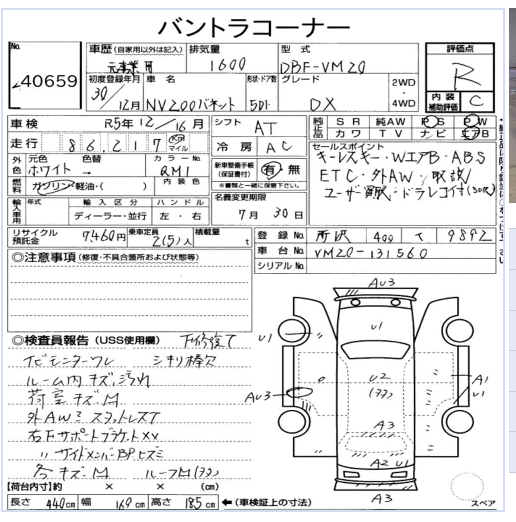 バントラコーナー
No. 40659
車歴 (自家用以外は記入) 排気量 1600 型式 DBF-VM20
評価点 R
内装補助評価 C
初度登録年月 30/12月 車名 NV200バネット 形状・ドア数 5D グレード DX 2WD・4WD
車検 R5年12/16月 シフト AT
純正品 SR 純AW PS PW
カワ TV ナビ エアB
走行 86,217 km マイル 冷房 AC
セールスポイント
キーレスキー・WエアB・ABS
ETC・外AW・取説/
ユーザー買取・ドラレコ付
外色 元色 ホワイト 色替 → カラーNo. QM1
新車整備手帳(保証書付) 有・無
※書類と一緒に保管下さい。
燃料 ガソリン・軽油・( ) 内装色
輸入車用 年式 輸入区分 ディーラー・並行 ハンドル 左・右
名義変更期限 7月30日
リサイクル預託金 7,460円 乗車定員 2(5)人 積載量 t
登録No. 所沢 400 9892
車台No. VM20-131560
シリアルNo.
◎注意事項 (修復・不具合箇所および状態等)
◎検査員報告 (USS使用欄) 下修復て
シキリ棒欠
ルーム内キズ汚れ
荷室キズM
外AWミスタットレスT
右Fサポートブラケット××
〃サイドメンバーBPヒズミ
各キズM
【荷台内寸】約 × × (cm)
長さ 440cm 幅 169cm 高さ 185cm ←(車検証上の寸法)
AU3
U1
U1
U2
AU3
A1
U1
A3
A2 U1
A3
スペア